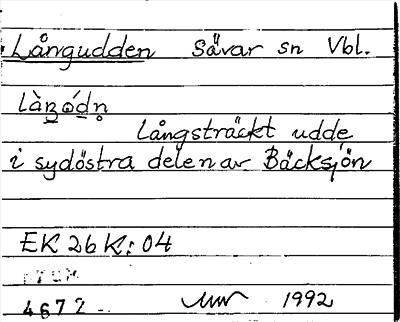 Långudden Sävar sn Vbl.
làŋódn̥
långsträckt udde
i sydöstra delen av Bäcksjön
EK 26 K: 04
4672
1992